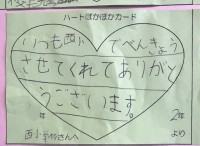 ハートぽかぽかカード
いつも西小でべんきょう
させてくれてありがと
うございます。
年
2年
西小学校さんへ
より